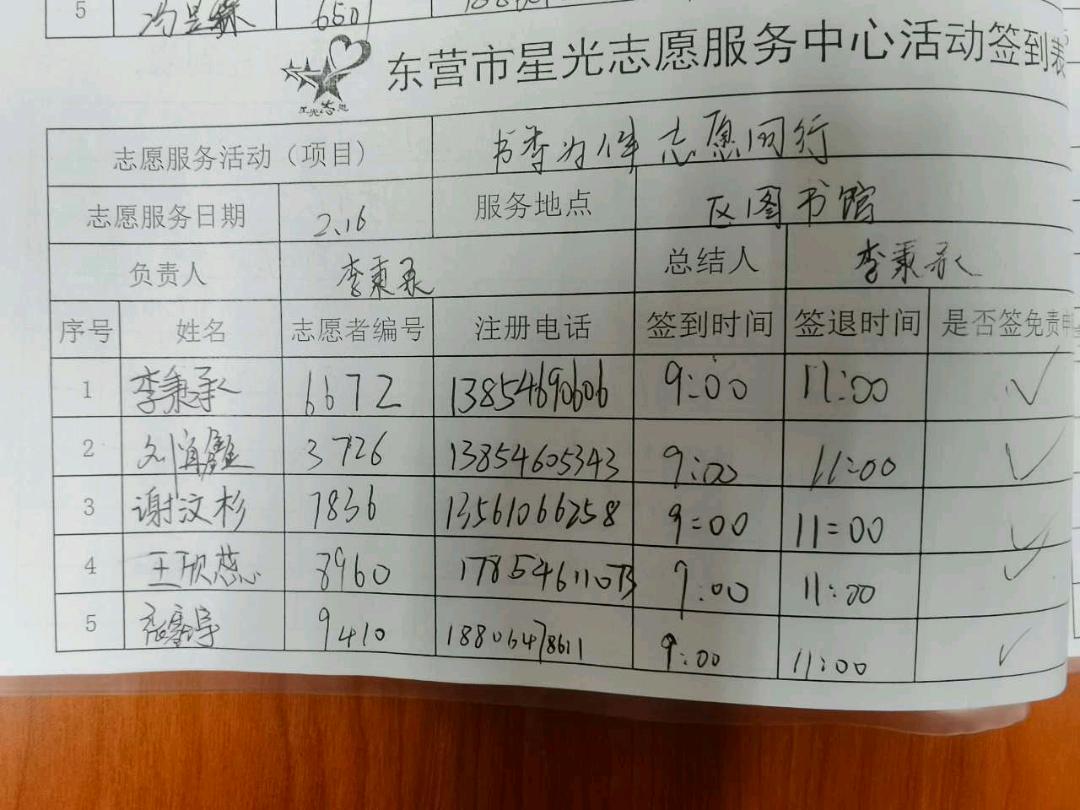 5 冯昱霖 6501
星光志愿
东营市星光志愿服务中心活动签到表
志愿服务活动（项目） 书香为伴 志愿同行
志愿服务日期 2.16 服务地点 区图书馆
负责人 李秉承 总结人 李秉承
序号 姓名 志愿者编号 注册电话 签到时间 签退时间 是否签免责申
1 李秉承 6672 13854690606 9:00 11:00 ✓
2 3726 13854605343 9:00 11:00 ✓
3 谢汶杉 7836 13561066258 9:00 11:00 ✓
4 王欣蕊 8960 17854611073 9:00 11:00 ✓
5 9410 18806478611 9:00 11:00 ✓